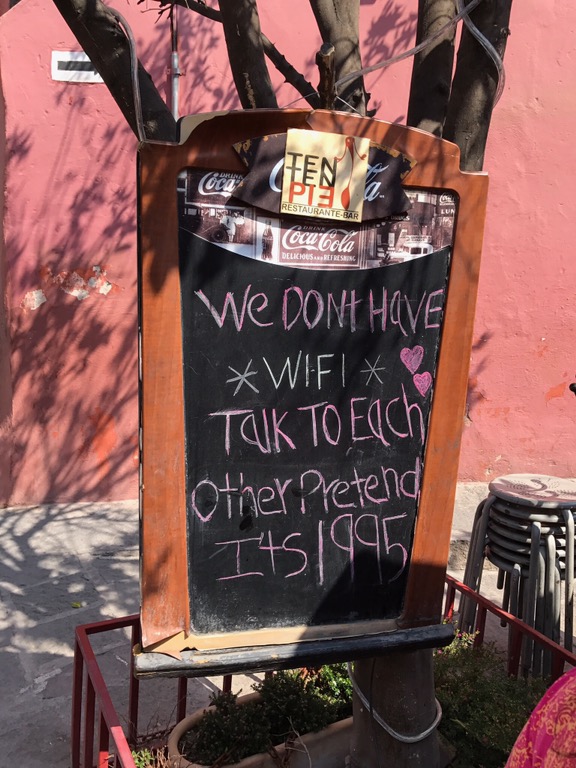 TEN
TEN
PIE
RESTAURANTE-BAR
DRINK
Coca-Cola
DRINK
Coca-Cola
DELICIOUS AND REFRESHING
We DONt HAVE
* WIFI *
Talk To Each
Other Pretend
Its 1995